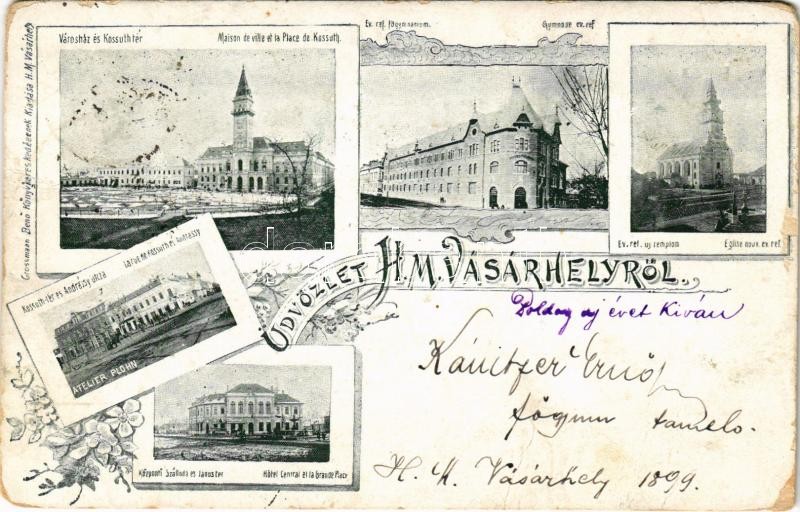 Városház és Kossuth tér
Maison de ville et la Place de Kossuth.
Ev. ref. főgymnasium.
Gymnase ev. ref
Grossmann Benő könyvkereskedésének Kiadása H.M.Vásárhely
Ev. ref. uj templom
Eglise nouv. ev ref.
Kossuth-tér és Andrássy utcza
La rue de Kossuth et Andrássy
ATELIER PLOHN
ÜDVÖZLET H.M.VÁSÁRHELYRŐL.
Boldog uj évet Kiván
Kánitzer Ernő
főgymn tanuló.
H. M. Vásárhely 1899.
Központi Szálloda és János tér
Hôtel Central et la Grande Place